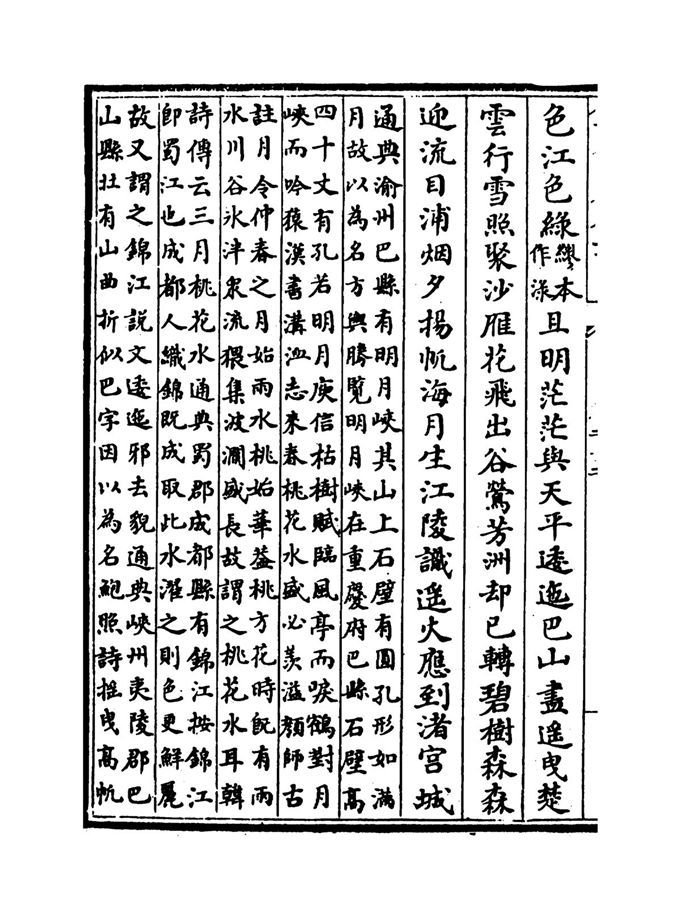 色江色綠繆本作淥且明茫茫與天平逶迤巴山盡遥曳楚
雲行雪照聚沙雁花飛出谷鶯芳洲却已轉碧樹森森
迎流目浦烟夕揚帆海月生江陵識遥火應到渚宫城
通典渝州巴縣有明月峽其山上石壁有圓孔形如滿
月故以為名方輿勝覽明月峽在重慶府巴縣石壁高
四十丈有孔若明月庾信枯樹賦臨風亭而唳鶴對月
峽而吟猿漢書溝洫志來春桃花水盛必羨溢顔師古
註月令仲春之月始雨水桃始華葢桃方花時旣有雨
水川谷氷泮衆流猥集波瀾盛長故謂之桃花水耳韓
詩傳云三月桃花水通典蜀郡成都縣有錦江按錦江
卽蜀江也成都人織錦旣成取此水濯之則色更鮮麗
故又謂之錦江説文逶迤邪去貌通典峽州夷陵郡巴
山縣北有山曲折似巴字因以為名鮑照詩摇曳高帆